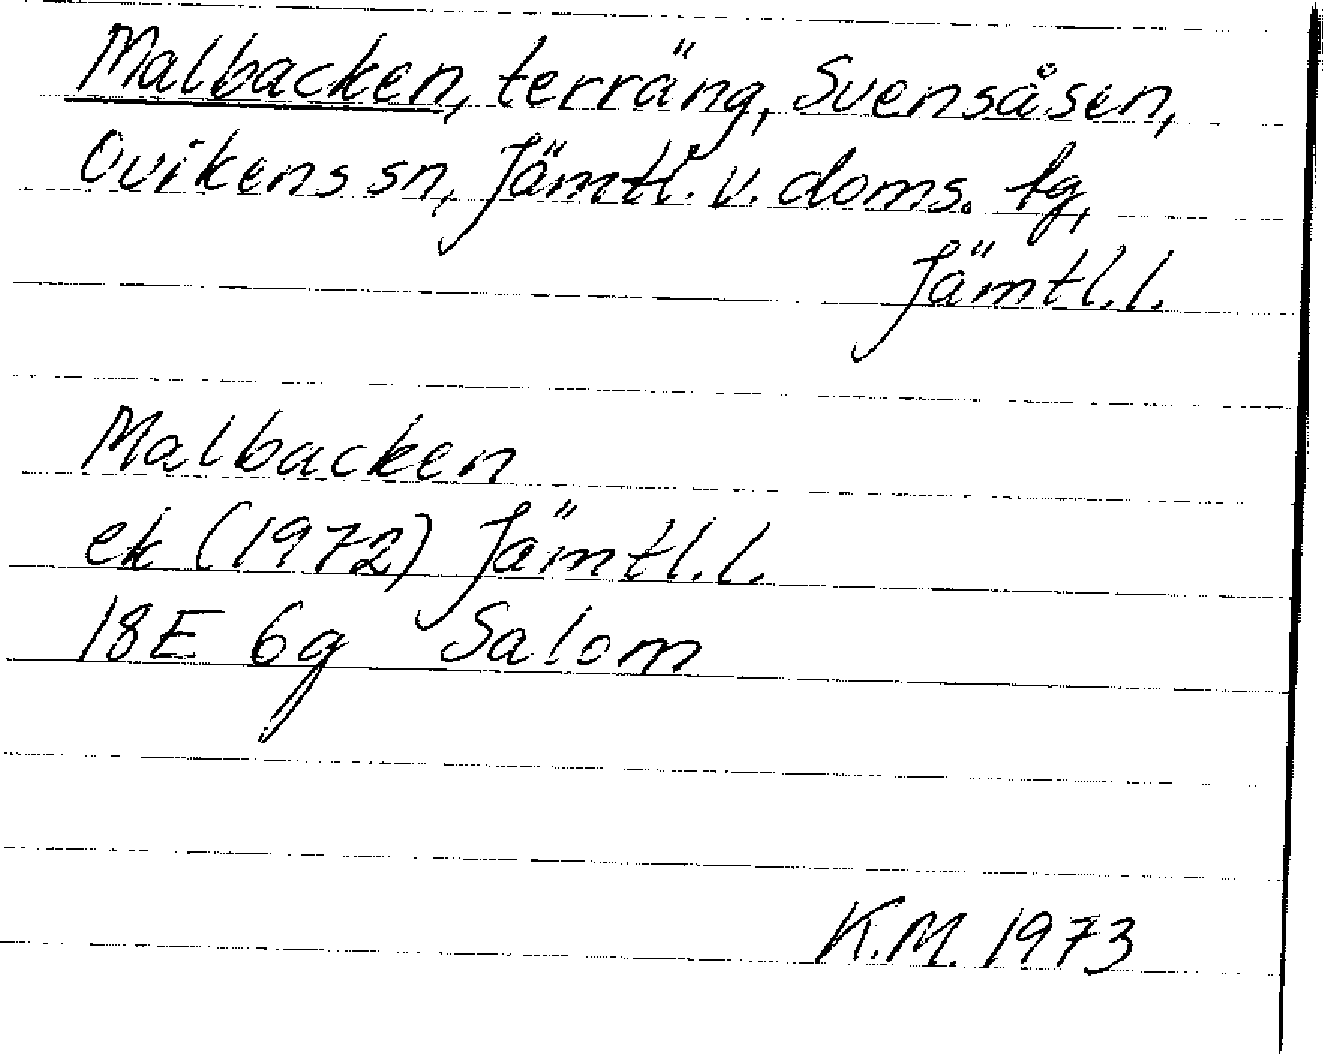 Malbacken, terräng, Svensåsen,
Ovikens sn, Jämtl. v. doms. tg,
Jämtl. l.
Malbacken
ek (1972) Jämtl. l.
18E 6g Salom
K.M. 1973